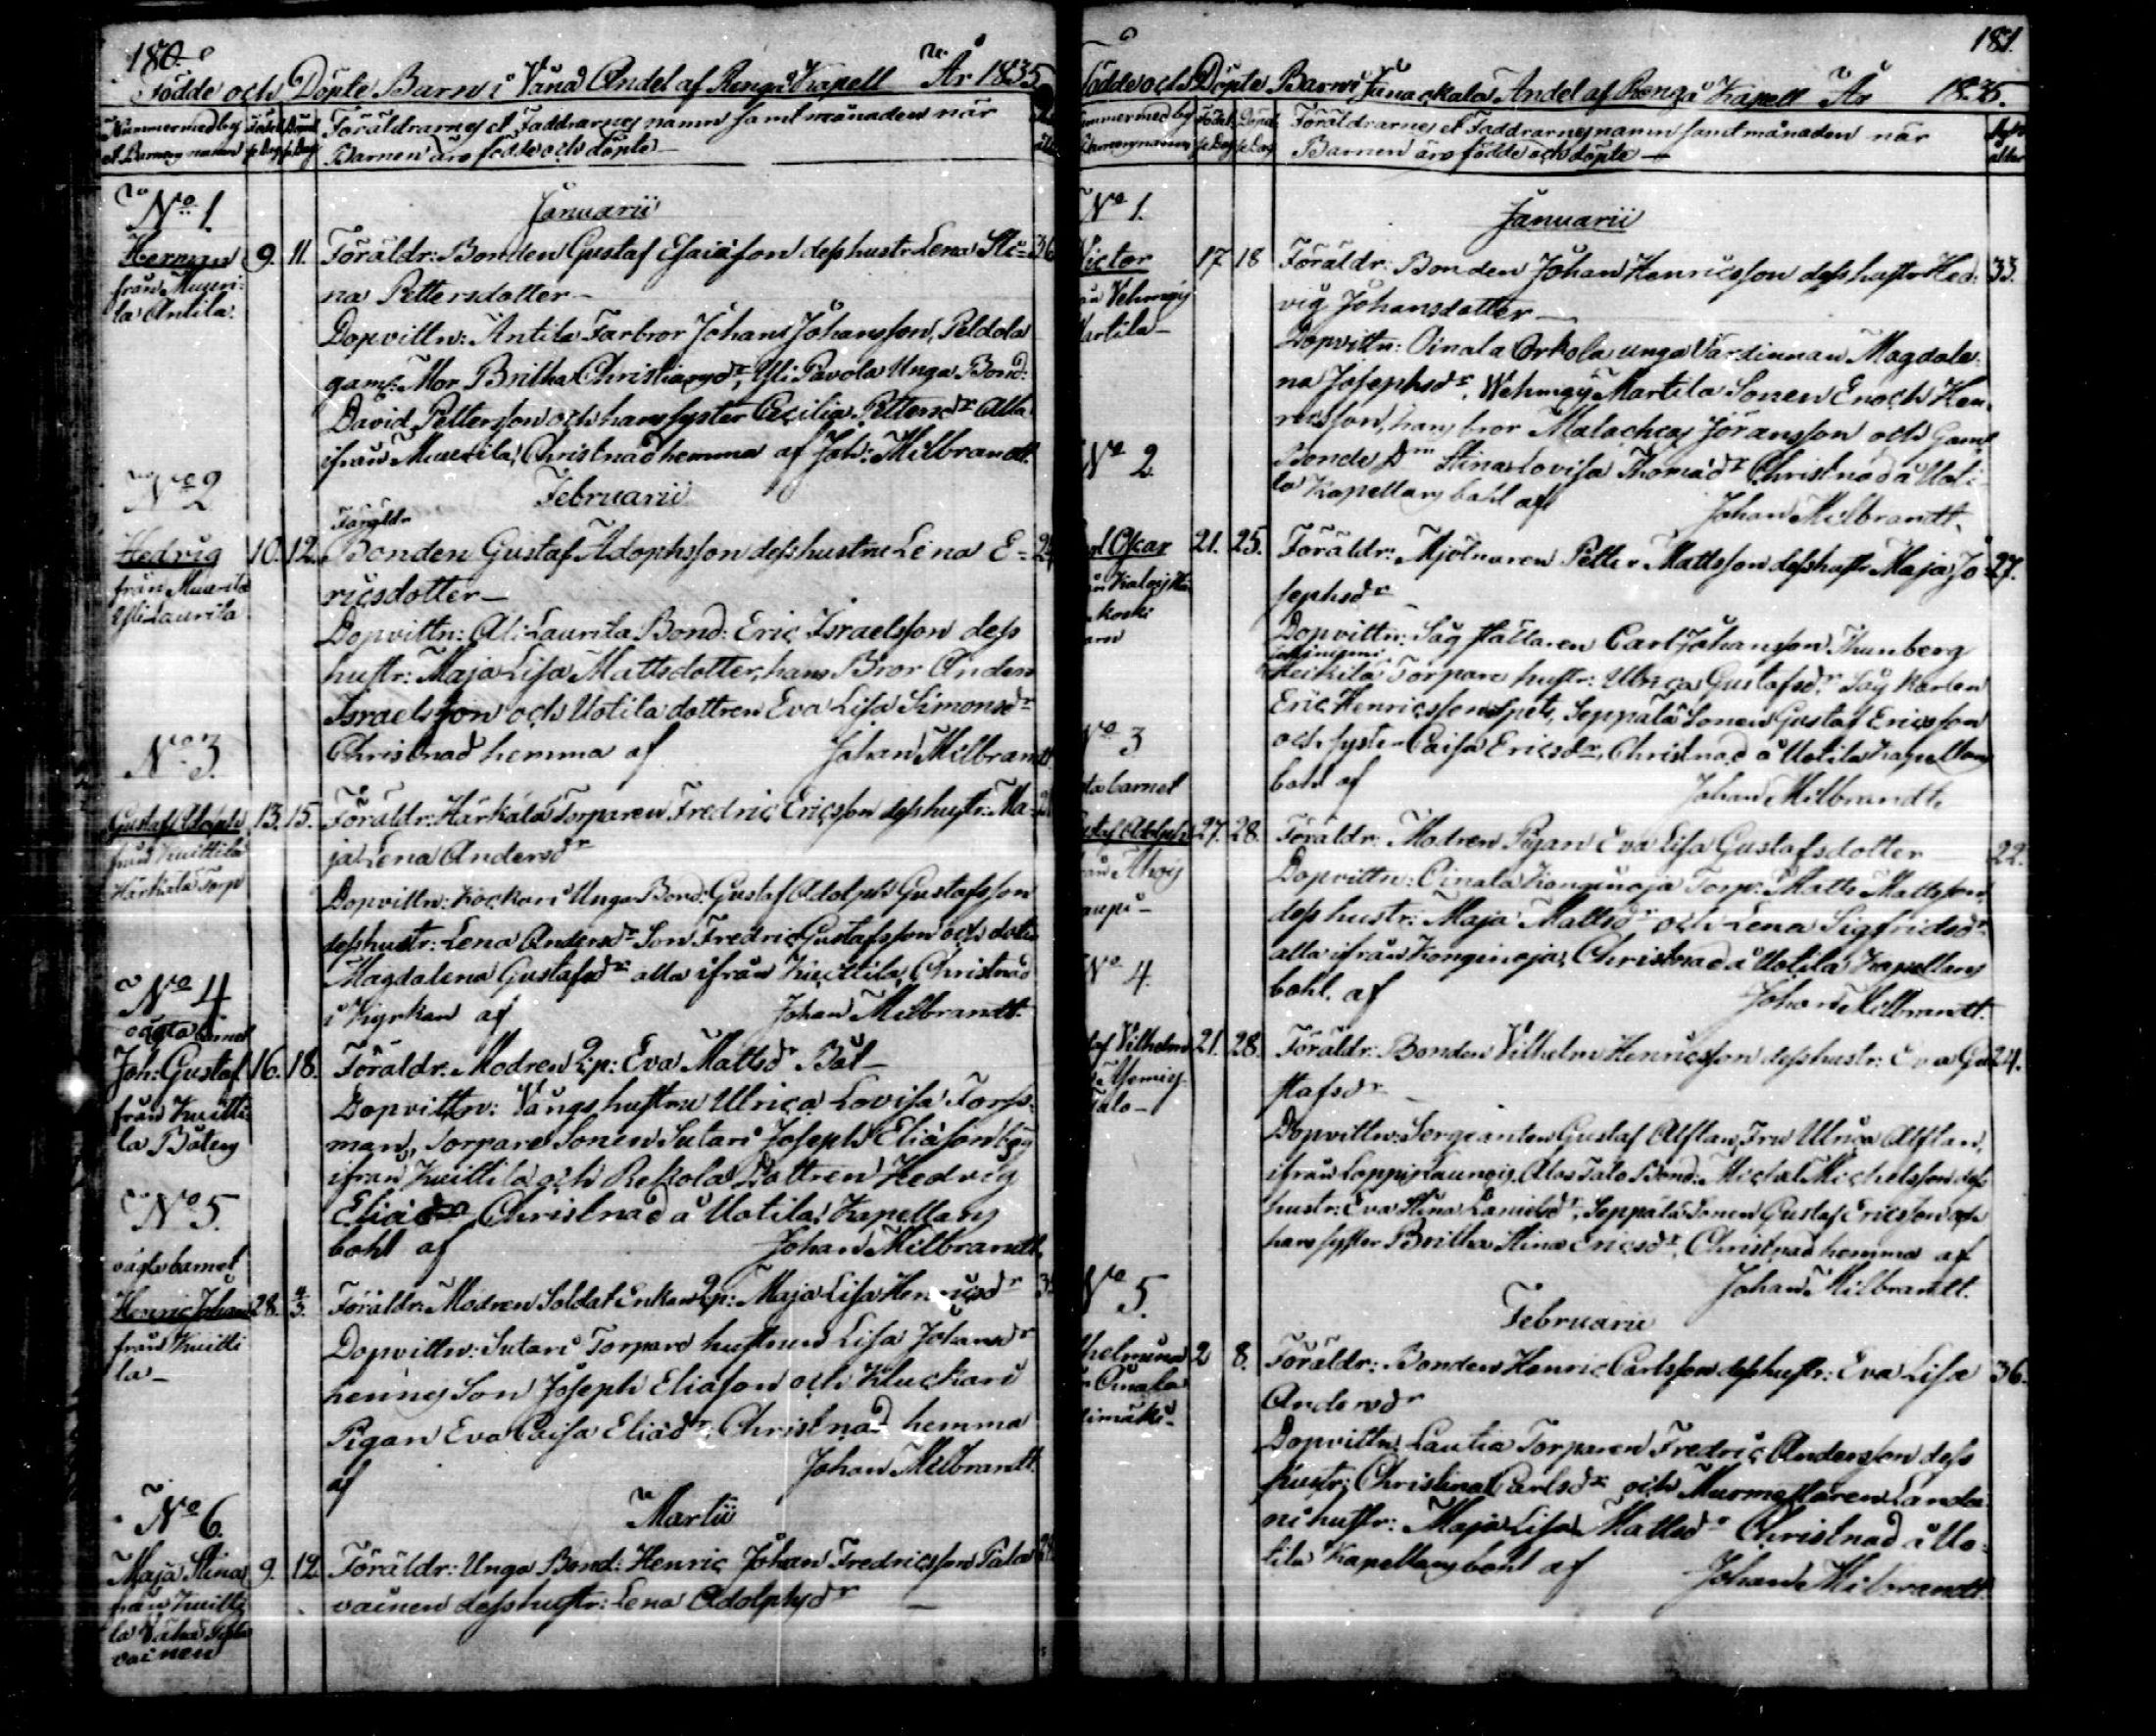 180.
Födde och Döpte Barn i Vånå Andel af Rengå Kapell År 1835
Föräldrarnes et Faddrarnes namn samt månaden när
Barnen äro födde och döpte
No 1
Januarii
Herman 9. 11. Föräldr: Bonden Gustaf Esaiasson dess hustr Lena Sti-
från Muuri-
na Pettersdotter
la Antila.
Dopvittn: Antila Farbror Johan Johansson, Peldola
gaml: Mor Britha Christiansdr, Yli Pavola Unga Bond:
David Pettersson och hans syster Cecilia Pettersdr Alla
ifrån Muurila, Christnad hemma af Joh: Milbrandt.
No 2
Februarii
Föräldr
Hedvig 10. 12. Bonden Gustaf Adophsson dess hustru Lena E-
från Muurila
ricsdotter
Yli Laurila
Dopvittn: Ali Laurila Bond: Eric Israelsson dess
hustr: Maja Lisa Mattsdotter, hans Bror Anders
Israelsson och Uotila dottren Eva Lisa Simonsdr
No 3.
Christnad hemma af Johan Milbrandt
Gustaf Adolph 13. 15. Föräldr: Härkälä Torparen Fredric Ericsson dess hustr: Ma-
från Kuittila
ja Lena Andersdr
Härkälä Torp
Dopvittn: Kockari Unga Bond: Gustaf Adolph Gustafsson
dess hustr: Lena Andersdr Son Fredric Gustafsson och dotter
Magdalena Gustafsdr alla ifrån Kuittila, Christnad
No 4
i Kyrkan af Johan Milbrandt.
oägta barnet
Joh: Gustaf 16. 18. Föräldr: Modren Qp: Eva Mattsdr Båt
från Kuitti-
Dopvittn: Vångs hustru Ulrica Lovisa Fors-
la Båtens
man, Torpare Sonen Sutari Joseph Eliasson
ifrån Kuittila och Rekola Dottren Hedvig
No 5.
Eliædr Christnad å Uotila Kapellans
bohl af Johan Milbrandt.
oägta barnet
Henric Johan 28. 4/3. Föräldr: Modren Soldat Enkan Qp: Maja Lisa Henricsdr
från Kuitti
Dopvittn: Sutari Torpare hustrun Lisa Johansdr
la
hennes Son Joseph Eliasson och Kluckari
Pigan Eva Caisa Eliædr, Christnad hemma
af Johan Milbrandt.
No 6.
Martii
Maja Stina 9. 12. Föräldr: Unga Bond: Henric Johan Fredricsson Pala
från Kuitti
vainen dess hustr: Lena Adolphsdr
la Vähä Pala
vainen
181.
Födde och Döpte Barn i Janackala Andel af Rengå Kapell År 1835.
Föräldrarnes et Faddrarnes namn samt månaden när
Barnen äro födde och döpte
No 1.
Januarii
Victor 17 18 Föräldr: Bonden Johan Henricsson dess hustr Hed- 33.
Vehmais
vig Johansdotter
Martila
Dopvittn: Oinala Orkola unga Värdinnan Magdale-
na Josephsdr, Wehmais Martila Sonen Enoch Hen-
ricsson, hans bror Malachias Jöransson och Gaml
No 2
Bonde Dm Stina Lovisa Thomædr Christnad å Uoti-
la Kapellans bohl af Johan Milbrandt.
Oscar 21. 25. Föräldr: Mjölnaren Petter Mattsson dess hustr Maja Jo- 27.
koski
sephsdr
Dopvittn: Såg ställaren Carl Johansson Thunberg
Heikilä Torpare hustr: Ulrica Gustafsdr, Såg Karlen
Eric Henricsson Spets, Seppälä Sonen Gustaf Ericsson
No 3
och syster Caisa Ericsdr, Christnad å Uotila Kapellans
bohl af Johan Milbrandt.
barnet
Gustaf Adolph 27. 28. Föräldr: Modren Pigan Eva Lisa Gustafsdotter 22.
Dopvittn: Oinala Kongінoja Torp: Matts Mattsson,
dess hustr: Maja Mattsdr och Lena Sigfridsdr
alla ifrån Konginoja, Christnad å Uotila Kapellans
No 4.
bohl. af Johan Milbrandt.
Vilhelm 21. 28. Föräldr: Bonden Vilhelm Henricsson dess hustr: Eva Gu- 24.
stafsdr
Talo
Dopvittn: Sergeanten Gustaf Alftan, Fru Ulrica Alftan,
ifrån Loppis Launois, Ala Talo Bond: Michel Michelsson dess
hustr: Eva Stina Danielsdr, Seppälä Sonen Gustaf Ericsson och
hans syster Britha Stina Ericsdr, Christnad hemma af
No 5.
Johan Milbrandt.
Februarii
helmina 2 8. Föräldr: Bonden Henric Carlsson dess hustr: Eva Lisa 36.
Oinala
Andersdr
Dopvittn: Lautia Torparen Fredric Andersson dess
hustr: Christina Carlsdr och Murmästaren Landé
ni hustr: Maja Lisa Mattsdr Christnad å Uo-
tila Kapellans bohl af Johan Milbrandt.